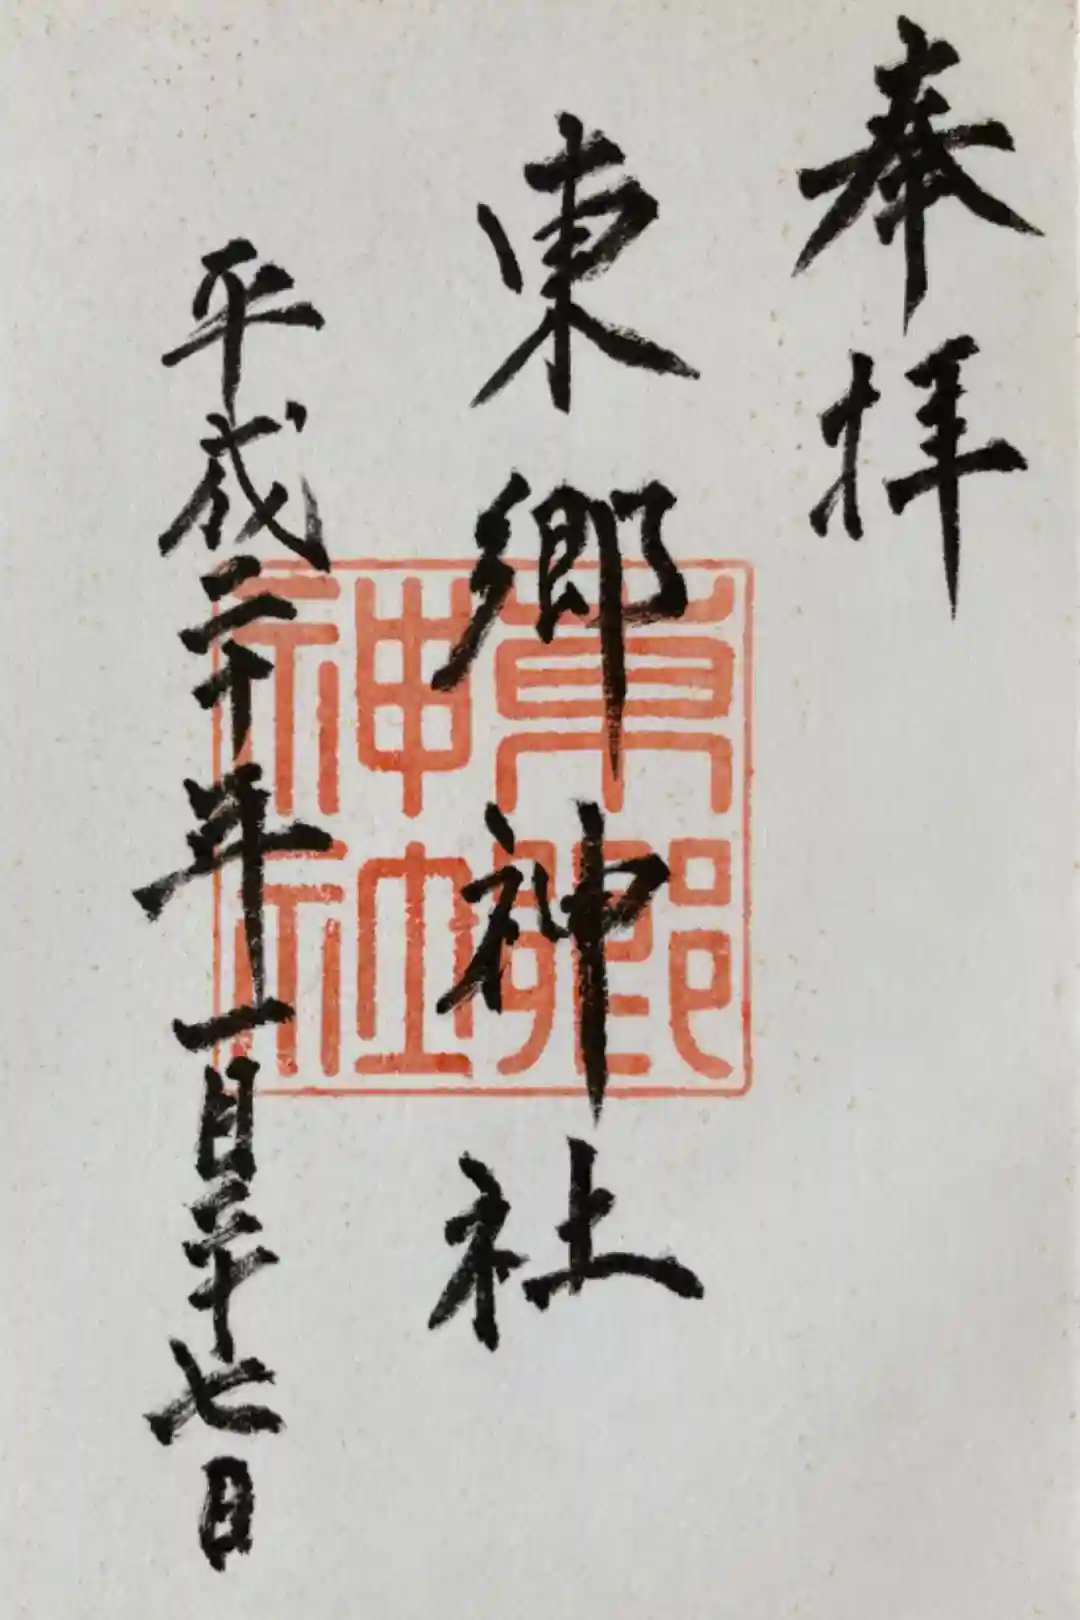 奉拝
東郷神社
平成二十年一月二十七日
東郷神社